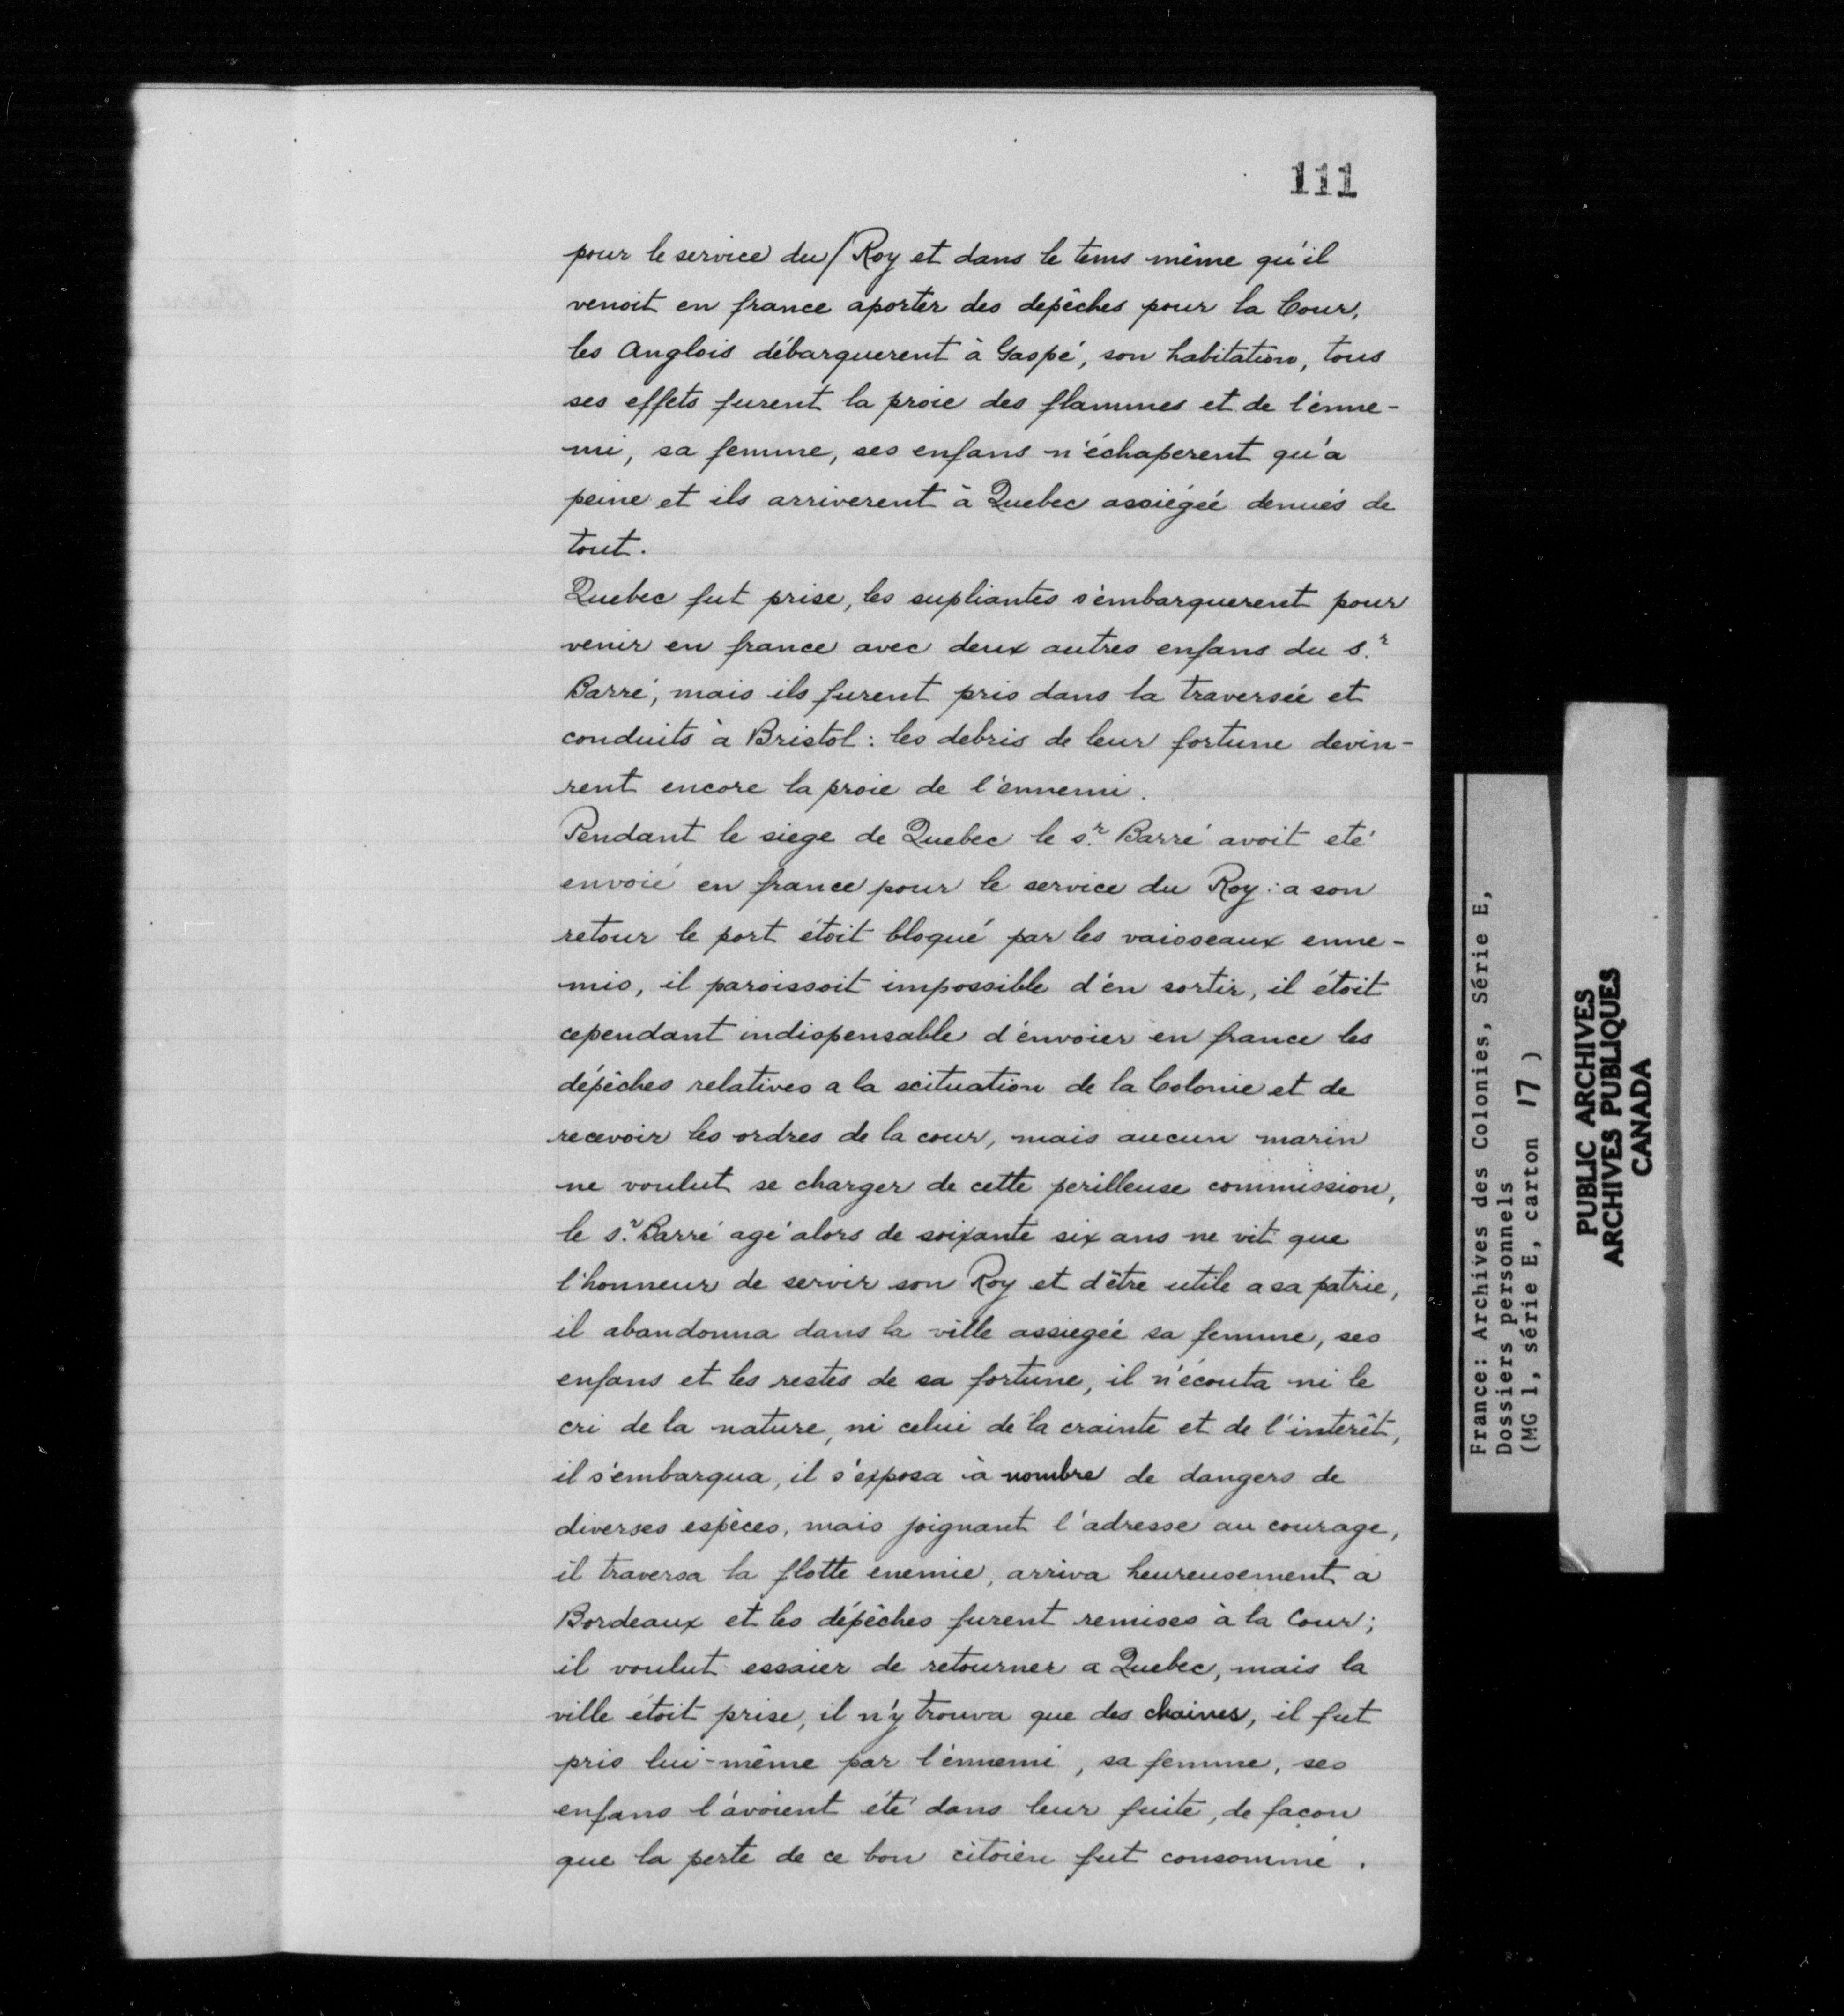 111
pour le service du/Roy et dans le tems même qu'il
venoit en france aporter des depêches pour la Cour,
les Anglois débarquerent à Gaspé, son habitation, tous
ses effets furent la proie des flammes et de l'énne-
mi, sa femme, ses enfans n'échaperent qu'a
peine et ils arriverent à Quebec assiégéé denués de
tout.
Quebec fut prise, les supliantes s'embarquerent pour
venir en france avec deux autres enfans du s.r
Barré, mais ils furent pris dans la traversée et
conduits à Bristol : les debris de leur fortune devin-
rent encore la proie de l'ennemi.
Pendant le siege de Quebec le s.r Barré avoit eté
envoié en france pour le service du Roy : a son
retour le port étoit bloqué par les vaisseaux enne-
mis, il paroissoit impossible d'én sortir, il étoit
cependant indispensable d'énvoier en france les
dépêches relatives a la scituation de la Colonie et de
recevoir les ordres de la cour, mais aucun marin
ne voulut se charger de cette perilleuse commission,
le s.r Barré agé alors de soixante six ans ne vit que
l'honneur de servir son Roy et d'être utile a sa patrie,
il abandonna dans la ville assiegéé sa femme, ses
enfans et les restes de sa fortune, il n'écouta ni le
cri de la nature, ni celui de la crainte et de l'interêt,
il s'embarqua, il s'exposa à nombre de dangers de
diverses espèces, mais joignant l'adresse au courage,
il traversa la flotte enemie, arriva heureusement a
Bordeaux et les dépêches furent remises à la Cour;
il voulut essaier de retourner a Quebec, mais la
ville étoit prise, il n'y trouva que des chaines, il fut
pris lui-même par l'énnemi, sa femme, ses
enfans l'ávoient été dans leur fuite, de façon
que la perte de ce bon citoien fut consommé.
France: Archives des Colonies, Série E,
Dossiers personnels
(MG 1, série E, carton 17 )
PUBLIC ARCHIVES
ARCHIVES PUBLIQUES
CANADA